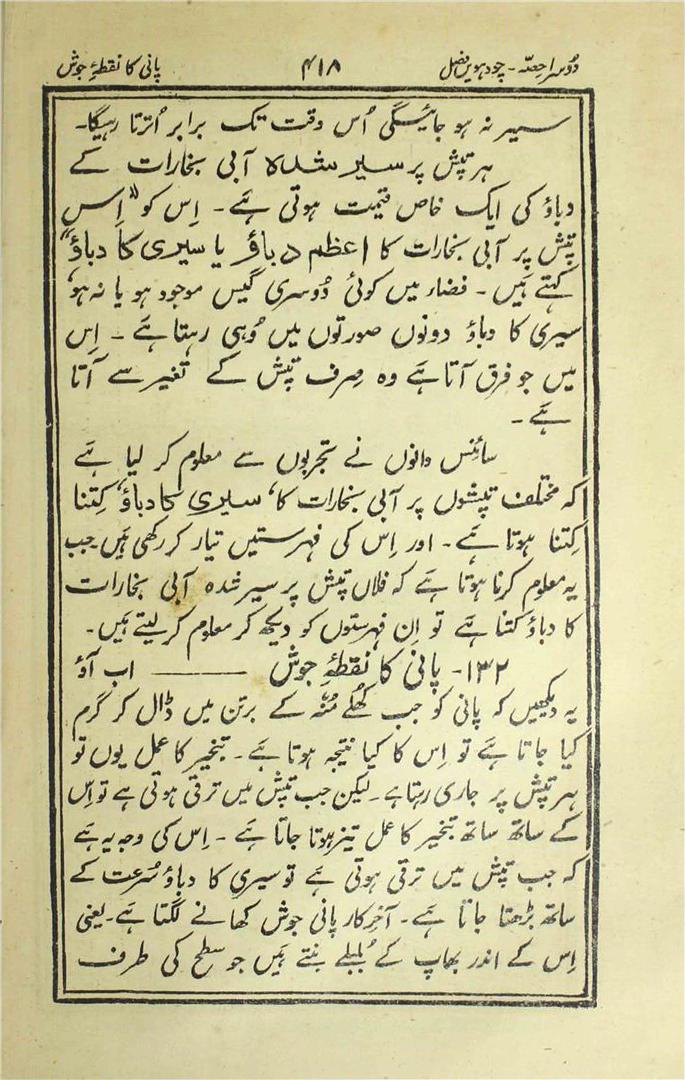 دُوسرا حصّہ - چودھویں فصل ۴۱۸ پانی کا نقطۂِ جوش
سیر نہ ہو جائیگی اُس وقت تک برابر اُترتا رہیگا۔
ہر تپش پر سیر شدہ آبی بخارات کے
دباؤ کی ایک خاص قیمت ہوتی ہَے۔ اِس کو ”اِس
تپش پر آبی بخارات کا اعظم دباؤ یا سیری کا دباؤ“
کہتے ہَیں۔ فضاء میں کوئی دُوسری گیس موجود ہو یا نہ ہو،
سیری کا دباؤ دونوں صورتوں میں وُہی رہتا ہَے۔ اِس
میں جو فرق آتا ہَے وہ صِرف تپش کے تغیر سے آتا
ہَے۔
سائنس دانوں نے تجربوں سے معلوم کر لیا ہَے
کہ مختلف تپشوں پر آبی بخارات کا ’سیری کا دباؤ‘ کِتنا
کِتنا ہوتا ہَے۔ اور اِس کی فہرستیں تیار کر رکھی ہَیں۔ جب
یہ معلوم کرنا ہوتا ہَے کہ فلاں تپش پر سیر شدہ آبی بخارات
کا دباؤ کتنا ہَے تو اِن فہرستوں کو دیکھ کر معلوم کر لیتے ہَیں۔
۱۳۲- پانی کا نقطۂِ جوش ـــــــ اب آؤ
یہ دیکھیں کہ پانی کو جب کُھلے مُنْہ کے برتن میں ڈال کر گرم
کیا جاتا ہَے تو اِس کا کیا نتیجہ ہوتا ہَے۔ تبخیر کا عمل یوں تو
ہر تپش پر جاری رہتا ہَے۔ لیکن جب تپش میں ترقی ہوتی ہے تو اِس
کے ساتھ ساتھ تبخیر کا عمل تیز ہوتا جاتا ہَے۔ اِس کی وجہ یہ ہَے
کہ جب تپش میں ترقی ہوتی ہَے تو سیری کا دباؤ سُرعت کے
ساتھ بڑھتا جاتا ہَے۔ آخرِکار پانی جوش کھانے لگتا ہَے۔ یعنی
اِس کے اندر بھاپ کے بُلبلے بنتے ہَیں جو سطح کی طرف